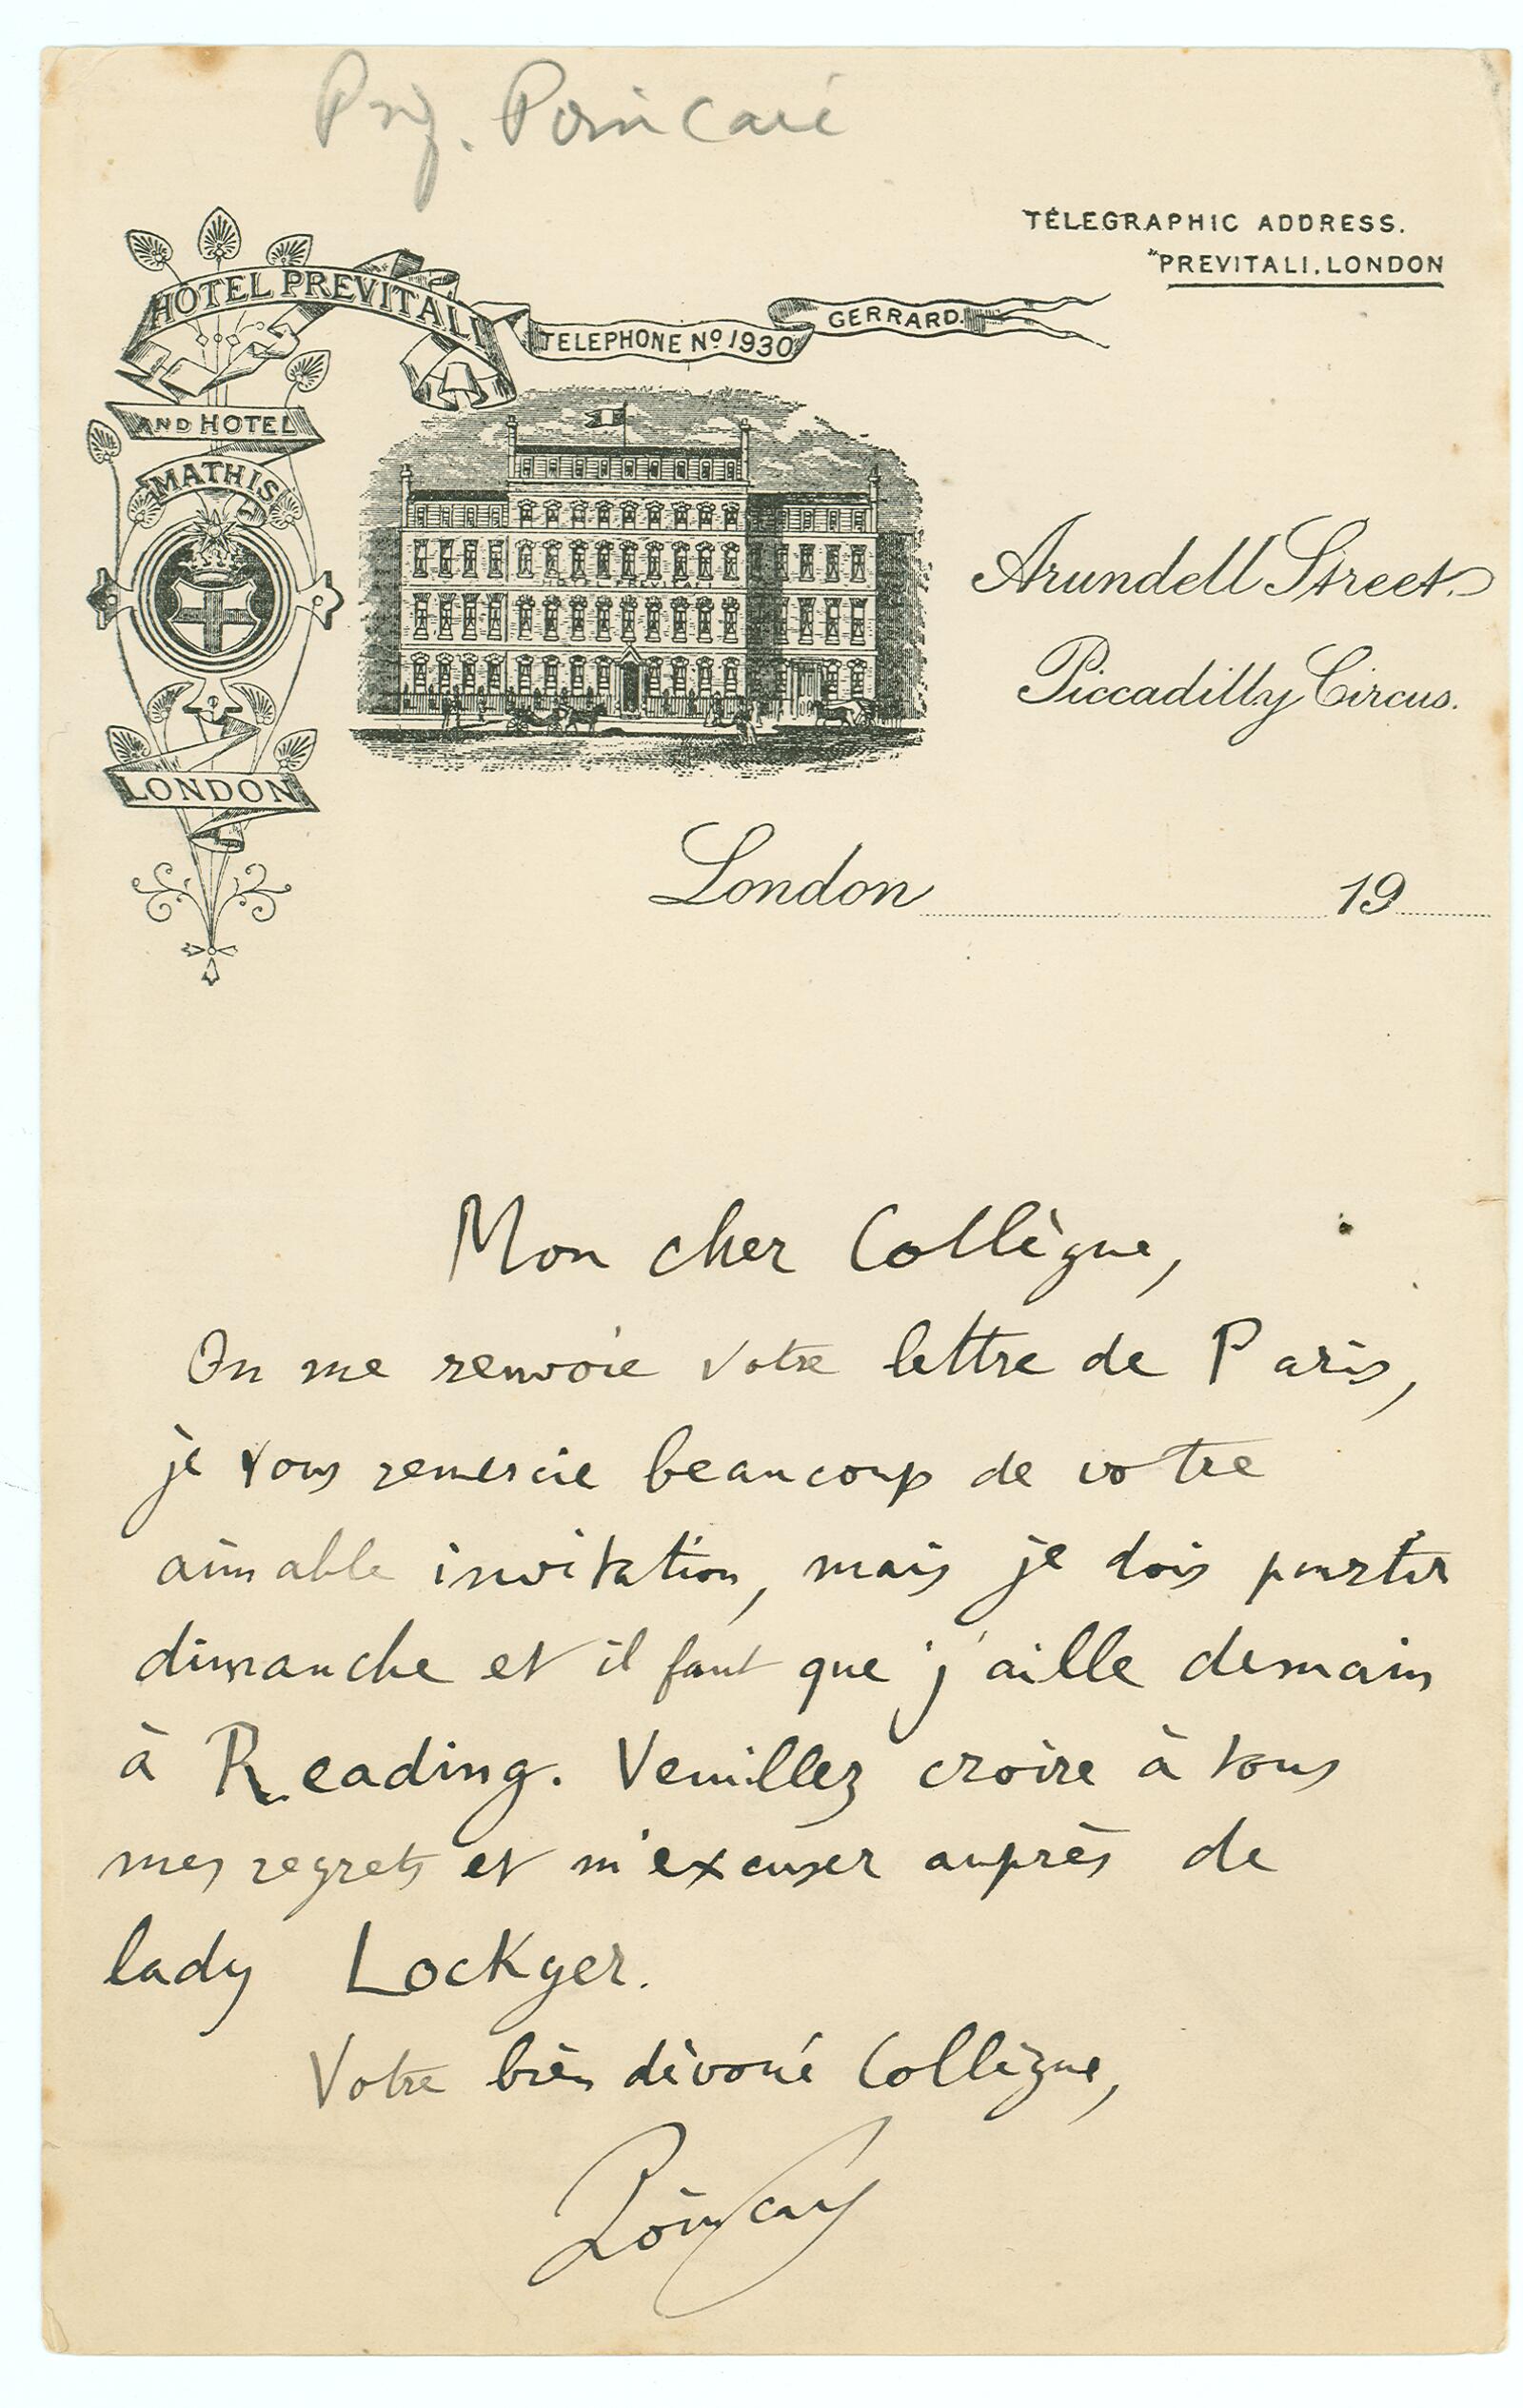 Prof. Poincaré
TELEGRAPHIC ADDRESS.
"PREVITALI, LONDON
HOTEL PREVITALI
TELEPHONE No 1930
GERRARD.
AND HOTEL
MATHIS
LONDON
Arundell Street.
Piccadilly Circus.
London 19
Mon cher Collègue,
On me renvoie votre lettre de Paris,
je vous remercie beaucoup de votre
aimable invitation, mais je dois partir
dimanche et il faut que j'aille demain
à Reading. Veuillez croire à tous
mes regrets et m'excuser auprès de
lady Lockyer.
Votre bien dévoué Collègue,
Poincaré